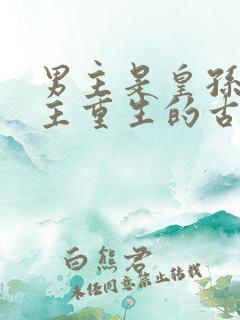 男主是皇孙
主重生的古
白熊君
未经同意禁止转载